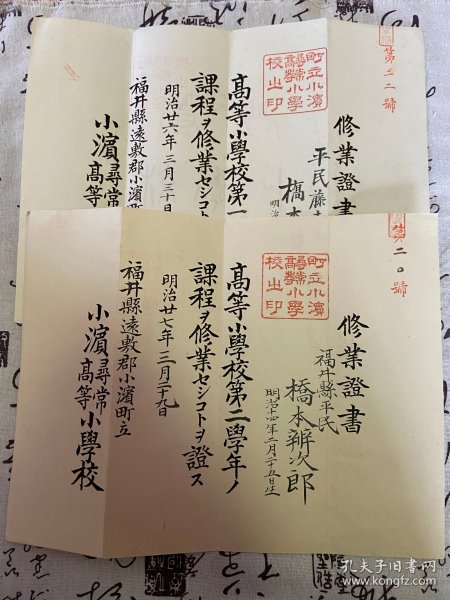 第二二號
修業證書
平民藤
橋本
明治
町立小濱
尋常高等小學
校之印
高等小學校第一
課程ヲ修業セシコト
明治廿六年三月三十日
福井縣遠敷郡小濱町
小濱尋常高等
第二〇號
修業證書
福井縣平民
橋本辨次郎
明治十四年二月二十五日生
町立小濱
尋常高等小學
校之印
高等小學校第二學年ノ
課程ヲ修業セシコトヲ證ス
明治廿七年三月二十九日
福井縣遠敷郡小濱町立
小濱尋常高等小學校
孔夫子旧书网
www.kongfz.com